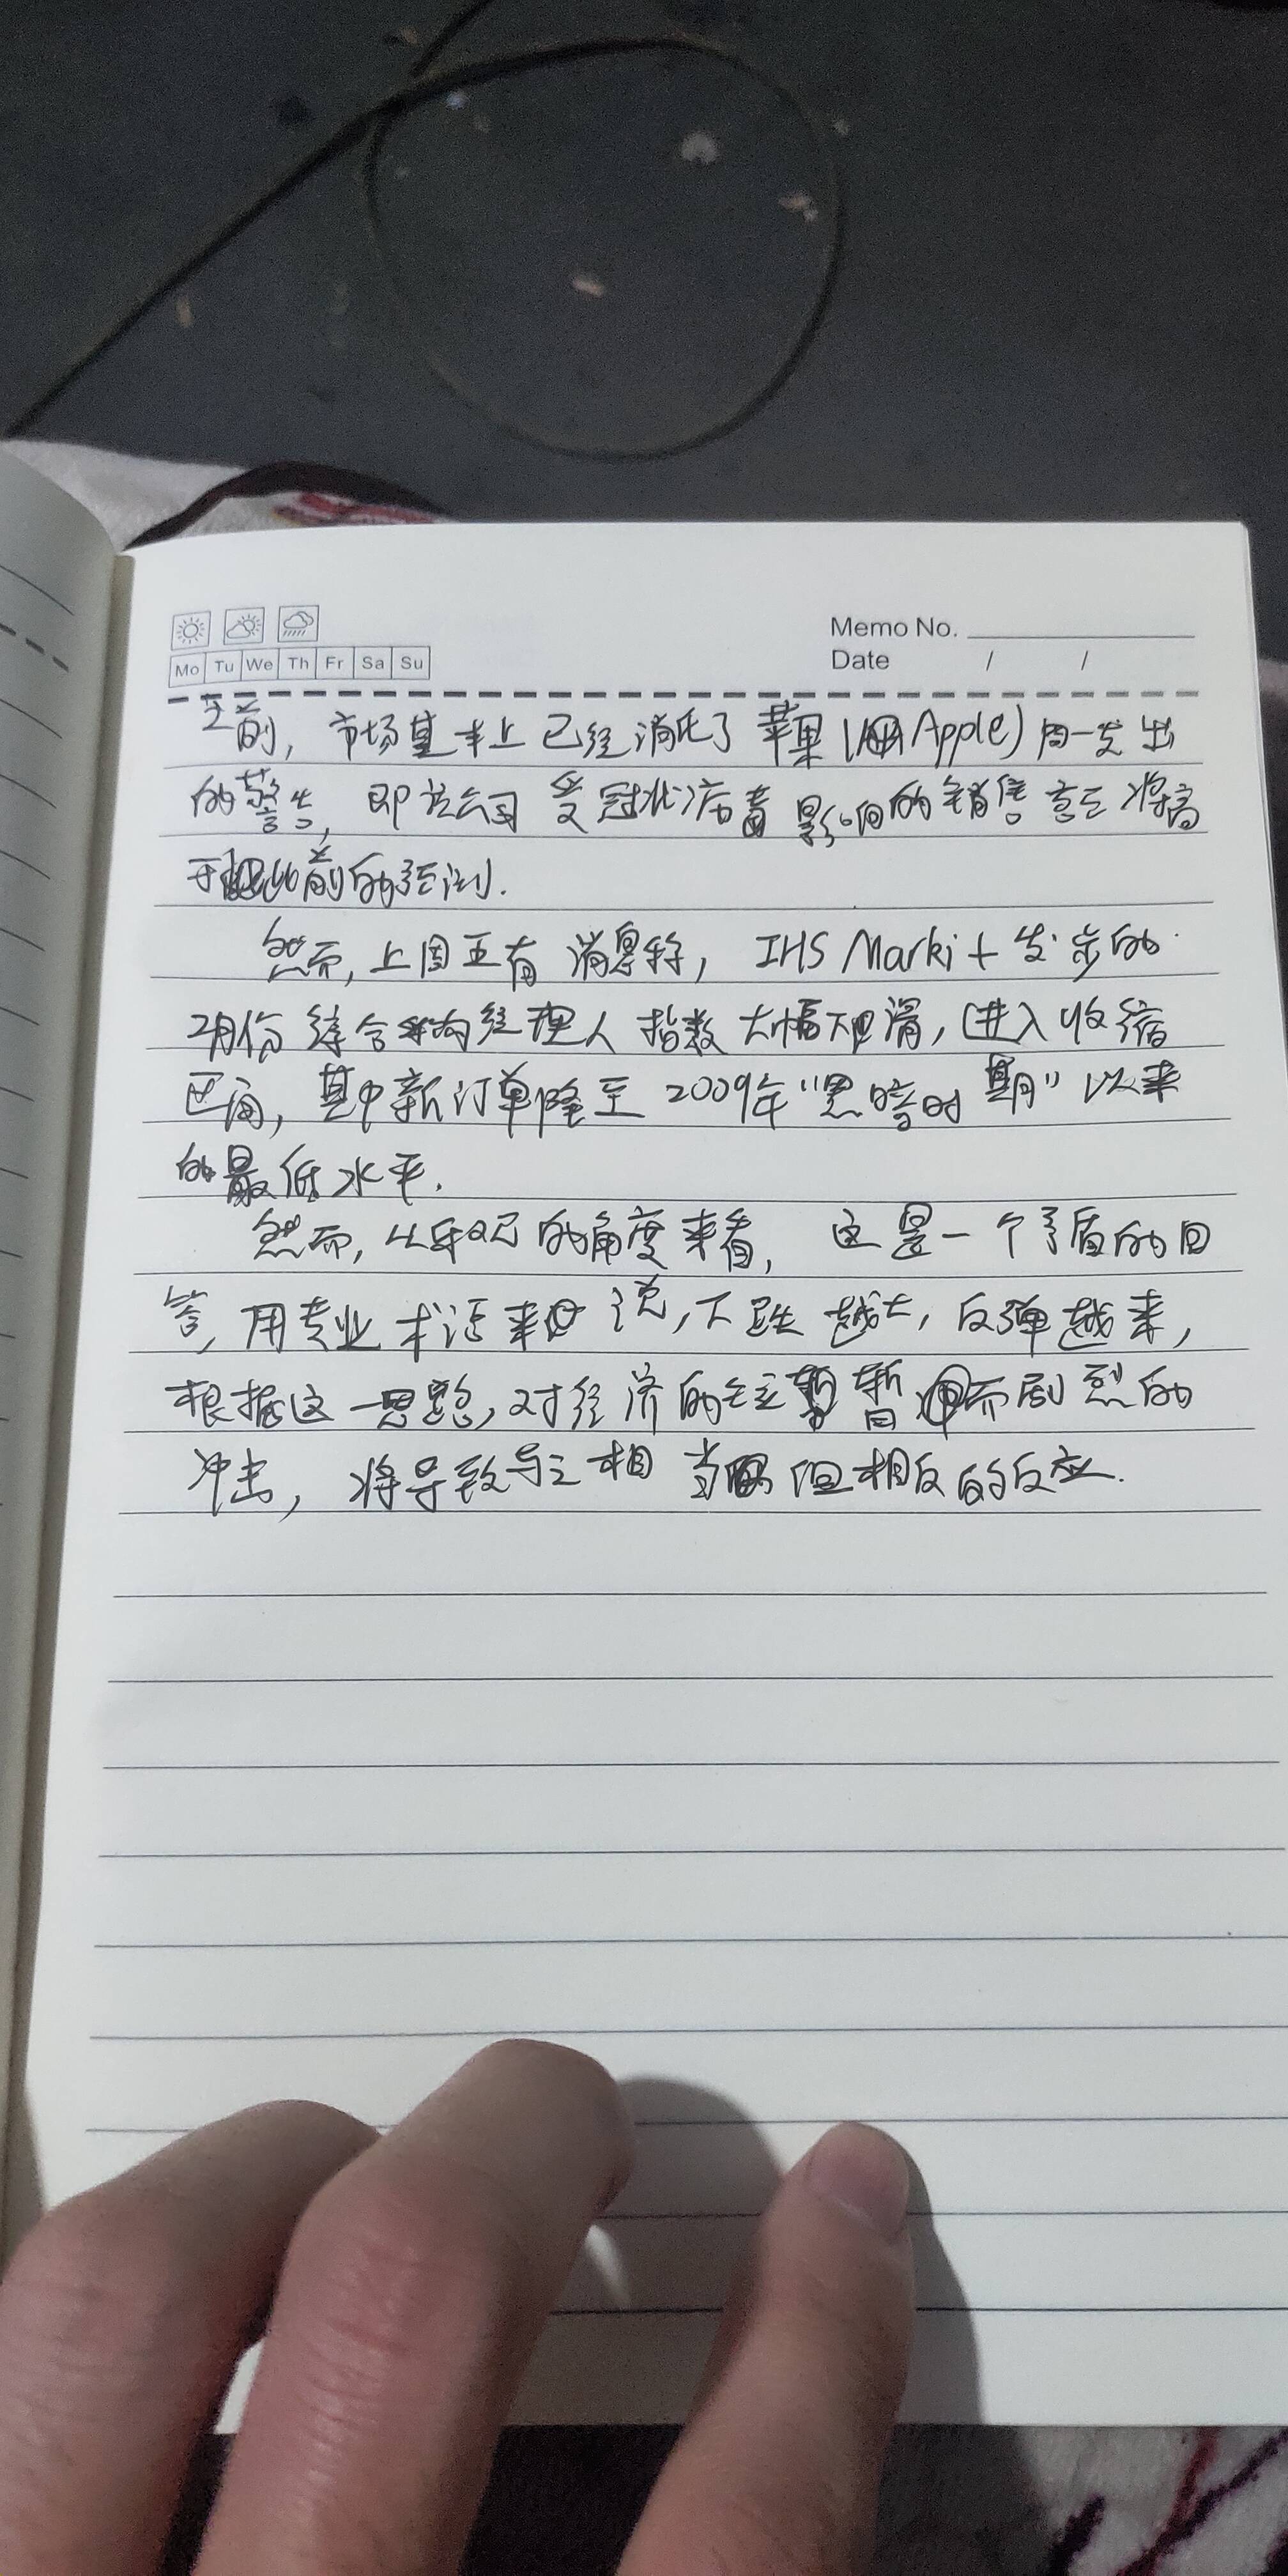 Memo No.
Mo Tu We Th Fr Sa Su
Date / /
之前，市场基本上已经消化了苹果（Apple）周一发出
的警告，即该公司受冠状病毒影响的销售额将高
于此前的预测.
然而，上周五有消息称，IHS Markit发步的
2月份综合采购经理人指数大幅下滑，进入收缩
区间，其中新订单降至2009年“黑暗时期”以来
的最低水平.
然而，从乐观的角度来看，这是一个矛盾的回
答，用专业术语来说，下跌越大，反弹越来，
根据这一思路，对经济的短暂而剧烈的
冲击，将导致与之相当但相反的反应.